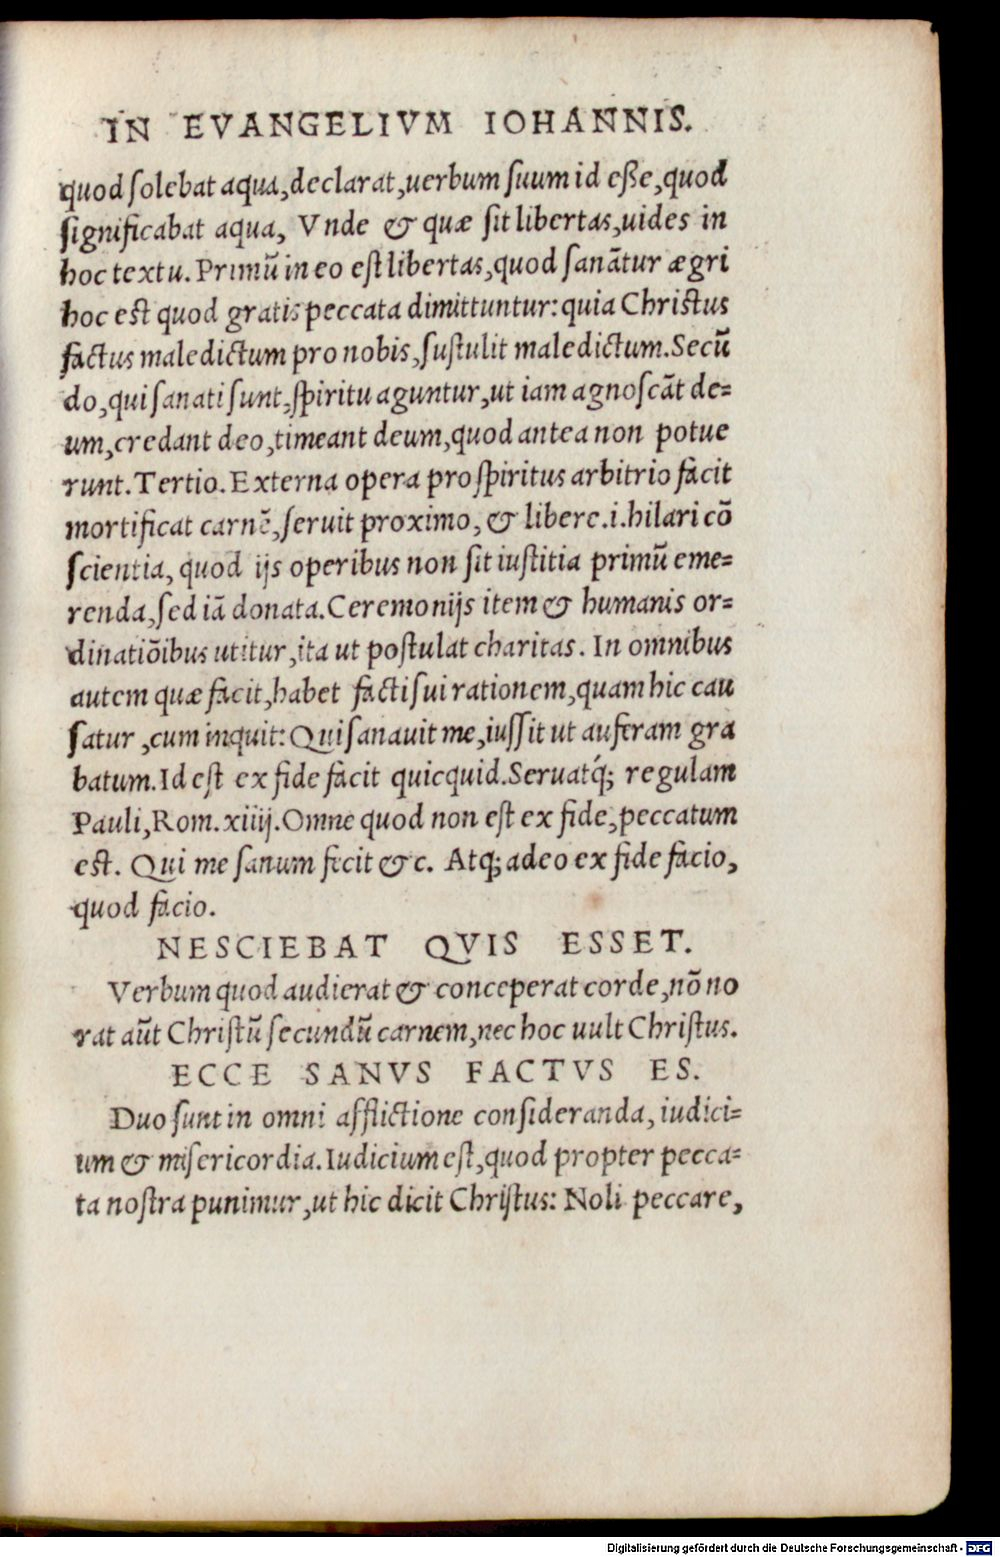 IN EVANGELIVM IOHANNIS.
quod ſolebat aqua,declarat,uerbum ſuum id eſſe,quod
ſignificabat aqua, Vnde & quæ ſit libertas,uides in
hoc textu.Primũ in eo eſt libertas,quod ſanãtur ægri
hoc est quod gratis peccata dimittuntur:quia Christus
factus maledictum pro nobis,ſuſtulit maledictum.Secũ
do,qui ſanati ſunt,ſpiritu aguntur,ut iam agnoſcãt de=
um,credant deo,timeant deum,quod antea non potue
runt.Tertio.Externa opera pro ſpiritus arbitrio facit
mortificat carnẽ,ſeruit proximo, & libere.i.hilari cõ
ſcientia, quod ijs operibus non ſit iuſtitia primũ eme=
renda,ſed iã donata.Ceremonijs item & humanis or=
dinatiõibus utitur,ita ut poſtulat charitas. In omnibus
autem quæ facit,habet facti ſui rationem,quam hic cau
ſatur ,cum inquit: Qui ſanauit me,iuſſit ut auferam gra
batum.Id eſt ex fide facit quicquid.Seruatq́; regulam
Pauli,Rom.xiiij.Omne quod non eſt ex fide,peccatum
est. Qui me ſanum fecit & c. Atq; adeo ex fide facio,
quod facio.
NESCIEBAT QVIS ESSET.
Verbum quod audierat & conceperat corde,nõ no
rat aũt Chriſtũ ſecundũ carnem,nec hoc uult Chriſtus.
ECCE SANVS FACTVS ES.
Duo ſunt in omni afflictione conſideranda, iudici=
um & miſericordia.Iudicium eſt,quod propter pecca=
ta noſtra punimur,ut hic dicit Chriſtus: Noli peccare,
Digitalisierung gefördert durch die Deutsche Forschungsgemeinschaft - DFG